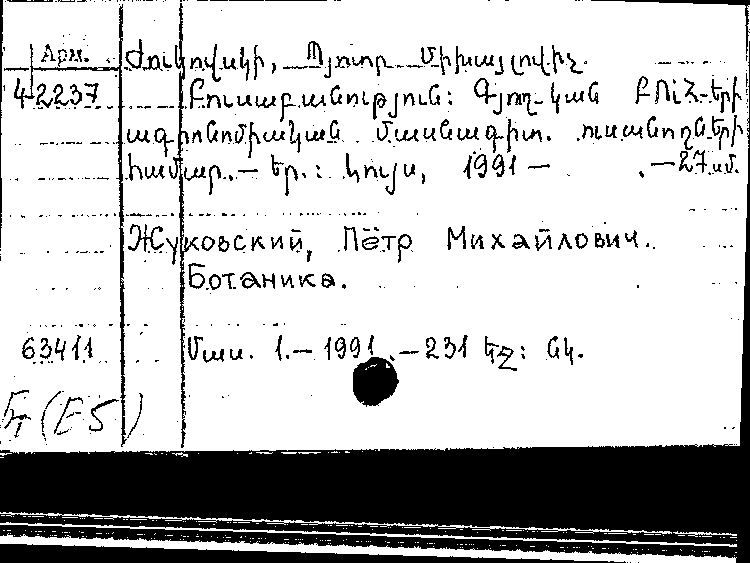 Арм. Ժուկովսկի, Պյոտր Միխայլովիչ.
4-2237 Բուսաբանություն: Գյուղ-կան ԲՈՒՀ-երի
ագրոնոմիական մասնագիտ. ուսանողների
համար. — Եր.: Լույս, 1991 — . — 27 սմ.
Жуковский, Пётр Михайлович.
Ботаника.
63411 Մաս. 1. — 1991. — 231 էջ: նկ.
(E5)